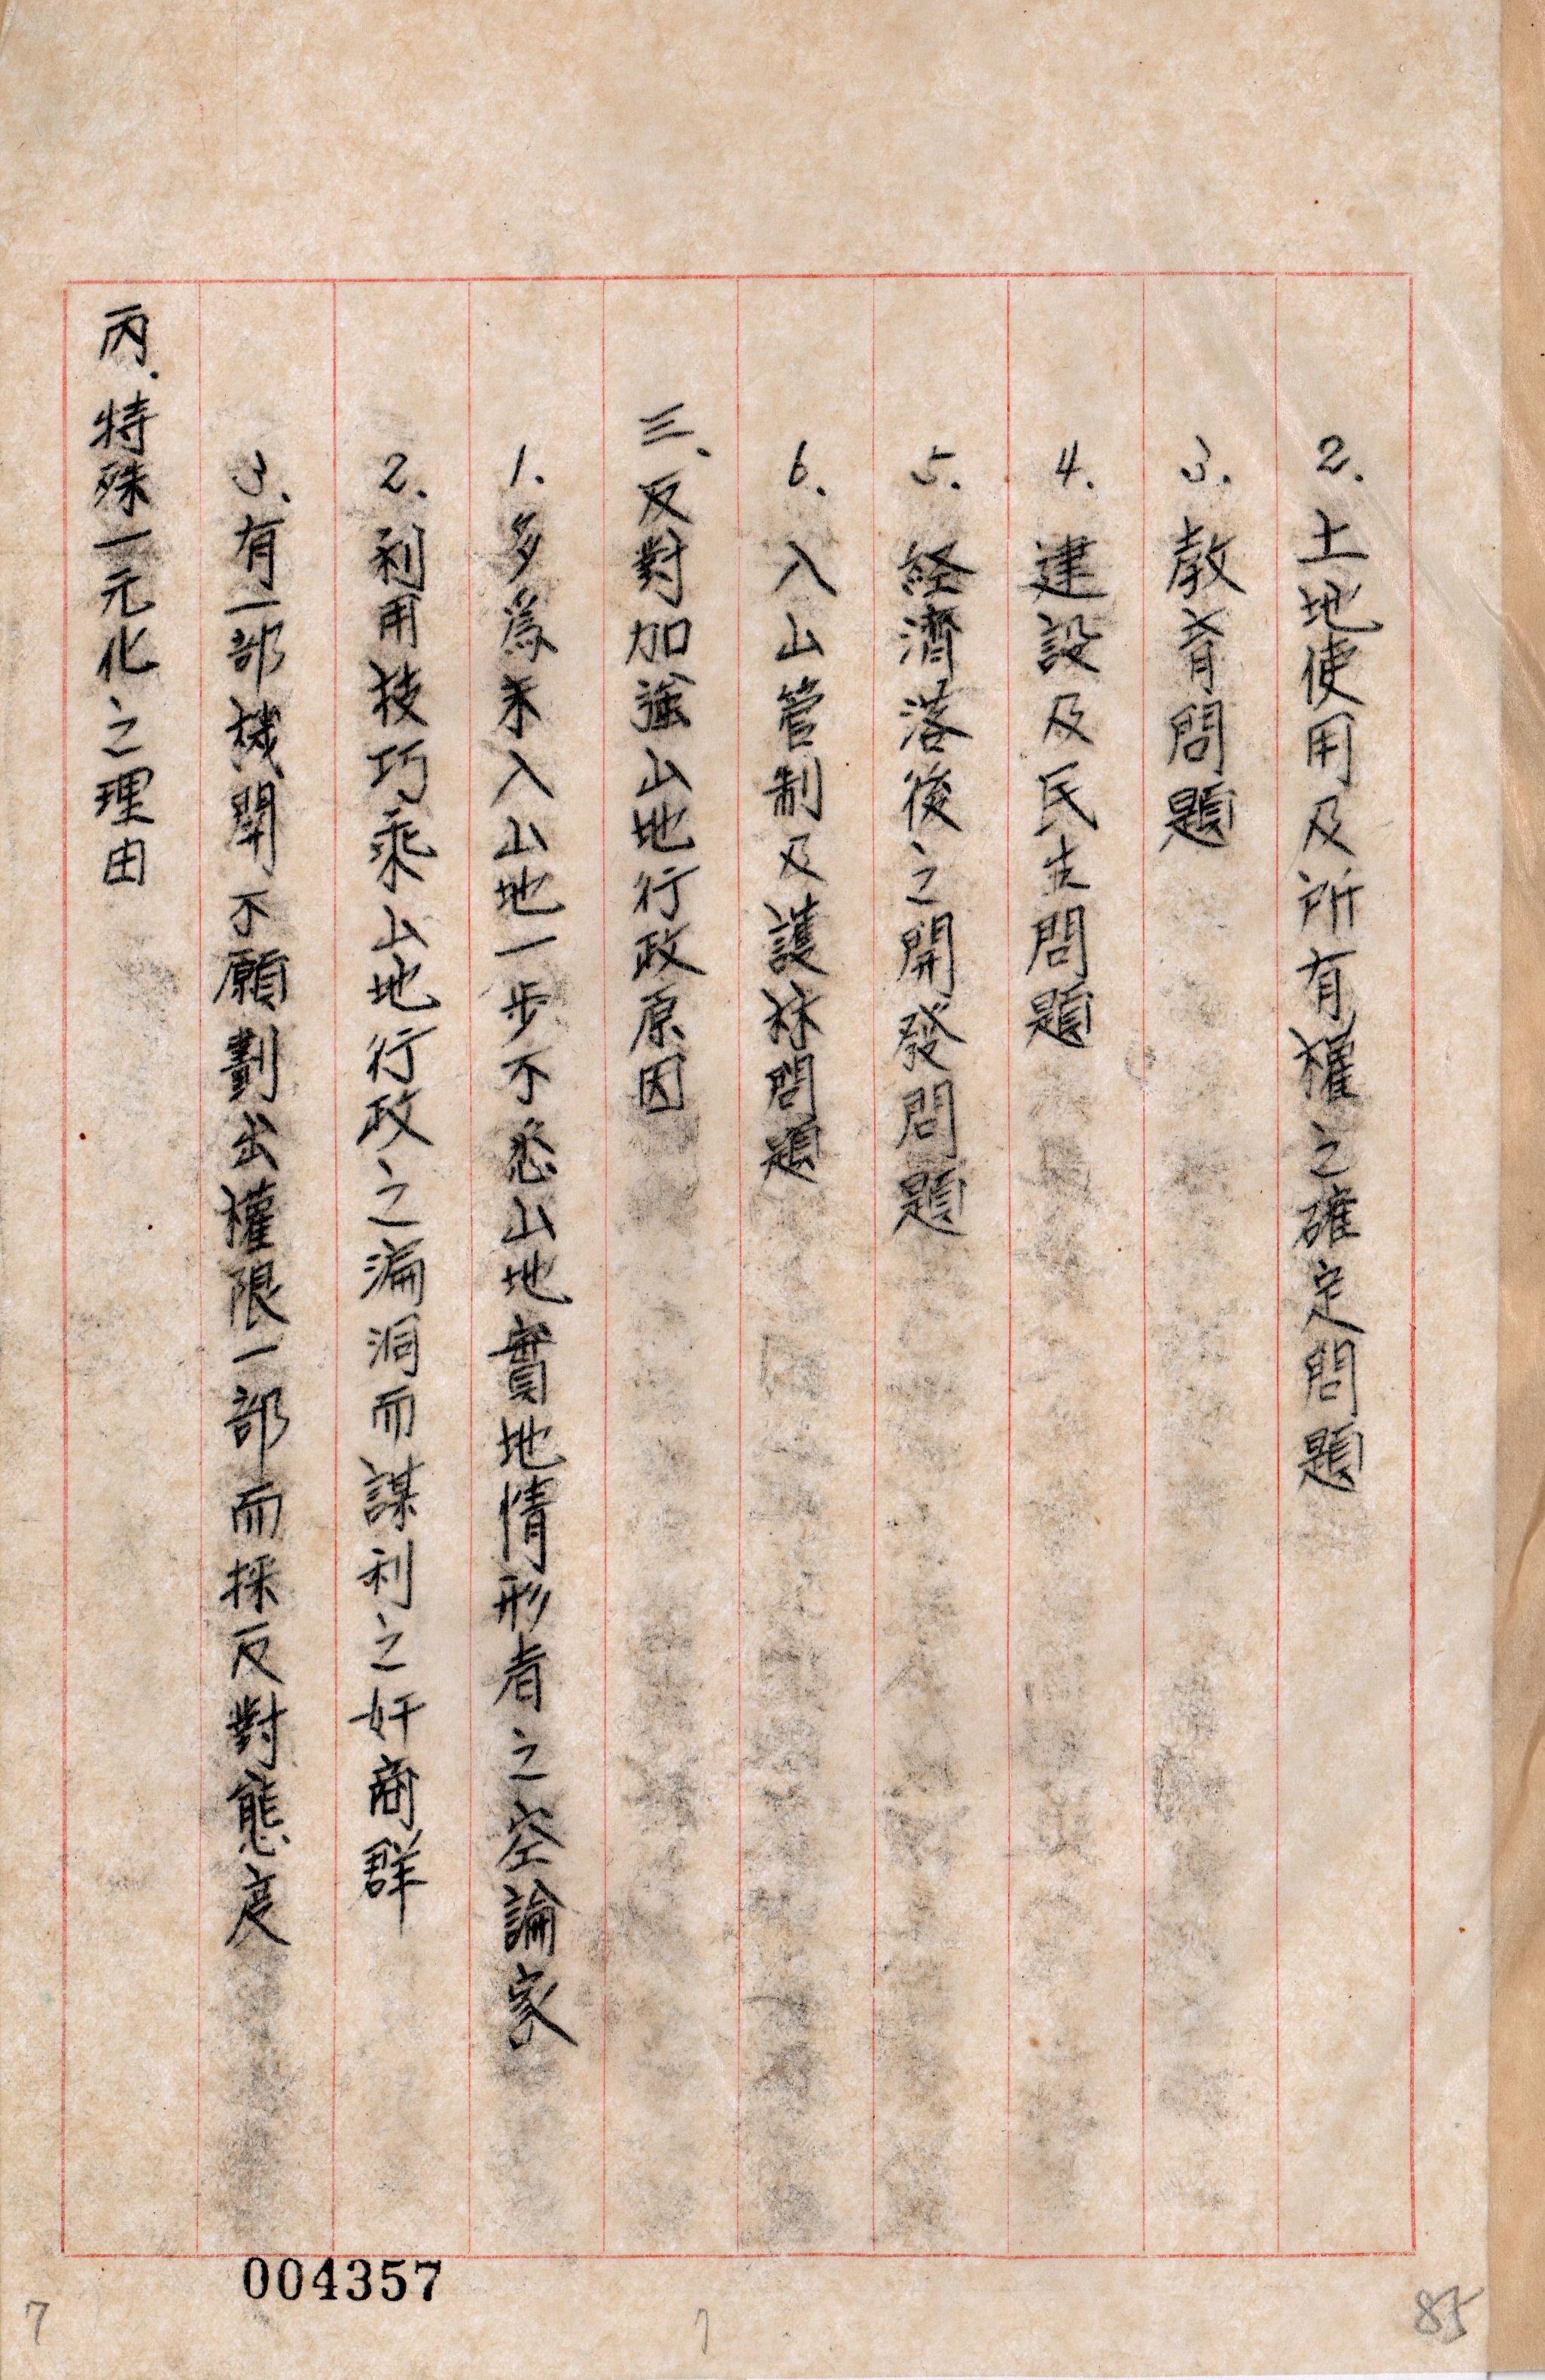 2. 土地使用及所有權之確定問題
3. 教育問題
4. 建設及民生問題
5. 経濟落後之開發問題
6. 入山管制及護林問題
三、反對加強山地行政原因
1. 多為未入山地一步不悉山地實地情形者之空論家
2. 利用技巧乘山地行政之漏洞而謀利之奸商群
3. 有一部機関不願劃出權限一部而採反對態度
丙. 特殊一元化之理由
004357
7
7
85